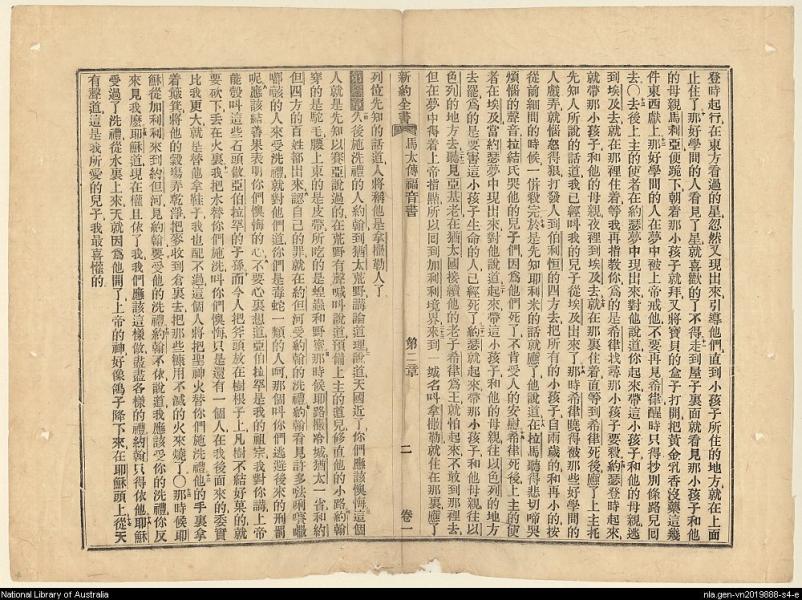 登時起行在東方看過的星忽然又現出來引導他們直到小孩子所住的地方就在上面
止住了那好學間的人看見了星就喜歡的了不得走到屋子裏面就看見那小孩子和他
的母親馬利亞便跪下朝着那小孩子就拜又將寶貝的盒子打開把黃金乳香沒藥這幾
件東西獻上那好學間的人在夢中被上帝戒他不要再見希律醒時只得抄別條路兒回
去〇去後上主的使者在約瑟夢中現出來對他說道你起來帶這小孩子和他的母親逃
到埃及去就在那裡住着等我再指教你為的是希律找尋那小孩子要殺約瑟登時起來
就帶那小孩子和他的母親夜裡到埃及去就在那裏住着直等到希律死後應了上主托
先知人所說的話道我已經叫我的兒子從埃及出來了那時希律曉得被那些好學間的
人戲弄就惱怒得狠打發人到伯利恒的四方去把所有的小孩子自兩歲的和再小的按
從前細問的時候一併殺完於是先知耶利米的話就應了他說道在拉馬聽得悲切啼哭
煩惱的聲音拉結氏哭他的兒子們因為他們死了不肯受人的安慰希律死後上主的使
者在埃及當約瑟夢中現出來對他說道起來帶這小孩子和他的母親往以色列的地方
去罷為的是要害這小孩子生命的人已經死了約瑟就起來帶那小孩子和他母親往以
色列的地方去聽見亞基老在猶太國接續他的老子希律為王就怕起來不敢到那裡去
但在夢中得着上帝指點所以回到加利利境界來到一城名叫拿撒勒就住在那裏應了
新約全書
馬太傳福音書
第三章
二
卷一
列位先知的話道人將稱他是拿撒勒人了
久後施洗禮的人約翰到猶太荒野講論道理說道天國近了你們應該懊悔這個
人就是先知以賽亞說過的在荒野有聲喊叫說道預備上主的道兒修直他的小路約翰
穿的是駝毛腰上束的是皮帶所吃的是蝗蟲和野蜜那時候耶路撒冷城猶太一省和約
但四方的百姓都出來認自己的罪就在約但河受約翰的洗禮約翰看見許多𠵽唎㘔㘔
㘔㘔的人來受洗禮就對他們道你們是毒蛇一類的人呵那個叫你們逃避後來的刑罰
呢應該結善果表明你們懊悔的心不要心裏想道亞伯拉罕是我的祖宗我對你講上帝
能彀叫這些石頭做亞伯拉罕的子孫而今人把斧頭放在樹根子上凡樹不結好菓的就
要砍下丟在火裏我把水替你們施洗叫你們懊悔只是還有一個人在我後面來的委實
比我更大就是替他拿鞋子我也配不過這個人將把聖神火替你們施洗禮他的手裏拿
着簸箕將他的穀塲弄乾淨把麥收到倉裏去把那些糠用不滅的火來燒了〇那時候耶
穌從加利利來到約但河見約翰要受他的洗禮約翰不依說道我應該受你的洗禮你反
來見我麼耶穌道現在權且依了我我們應該這樣做盡盡各樣的禮約翰只得依他耶穌
受過了洗禮從水裏上來天就因為他開了上帝的神好像鴿子降下來在耶穌頭上從天
有聲道這是我所愛的兒子我最喜懽的
National Library of Australia
nla.gen-vn2019888-s4-e